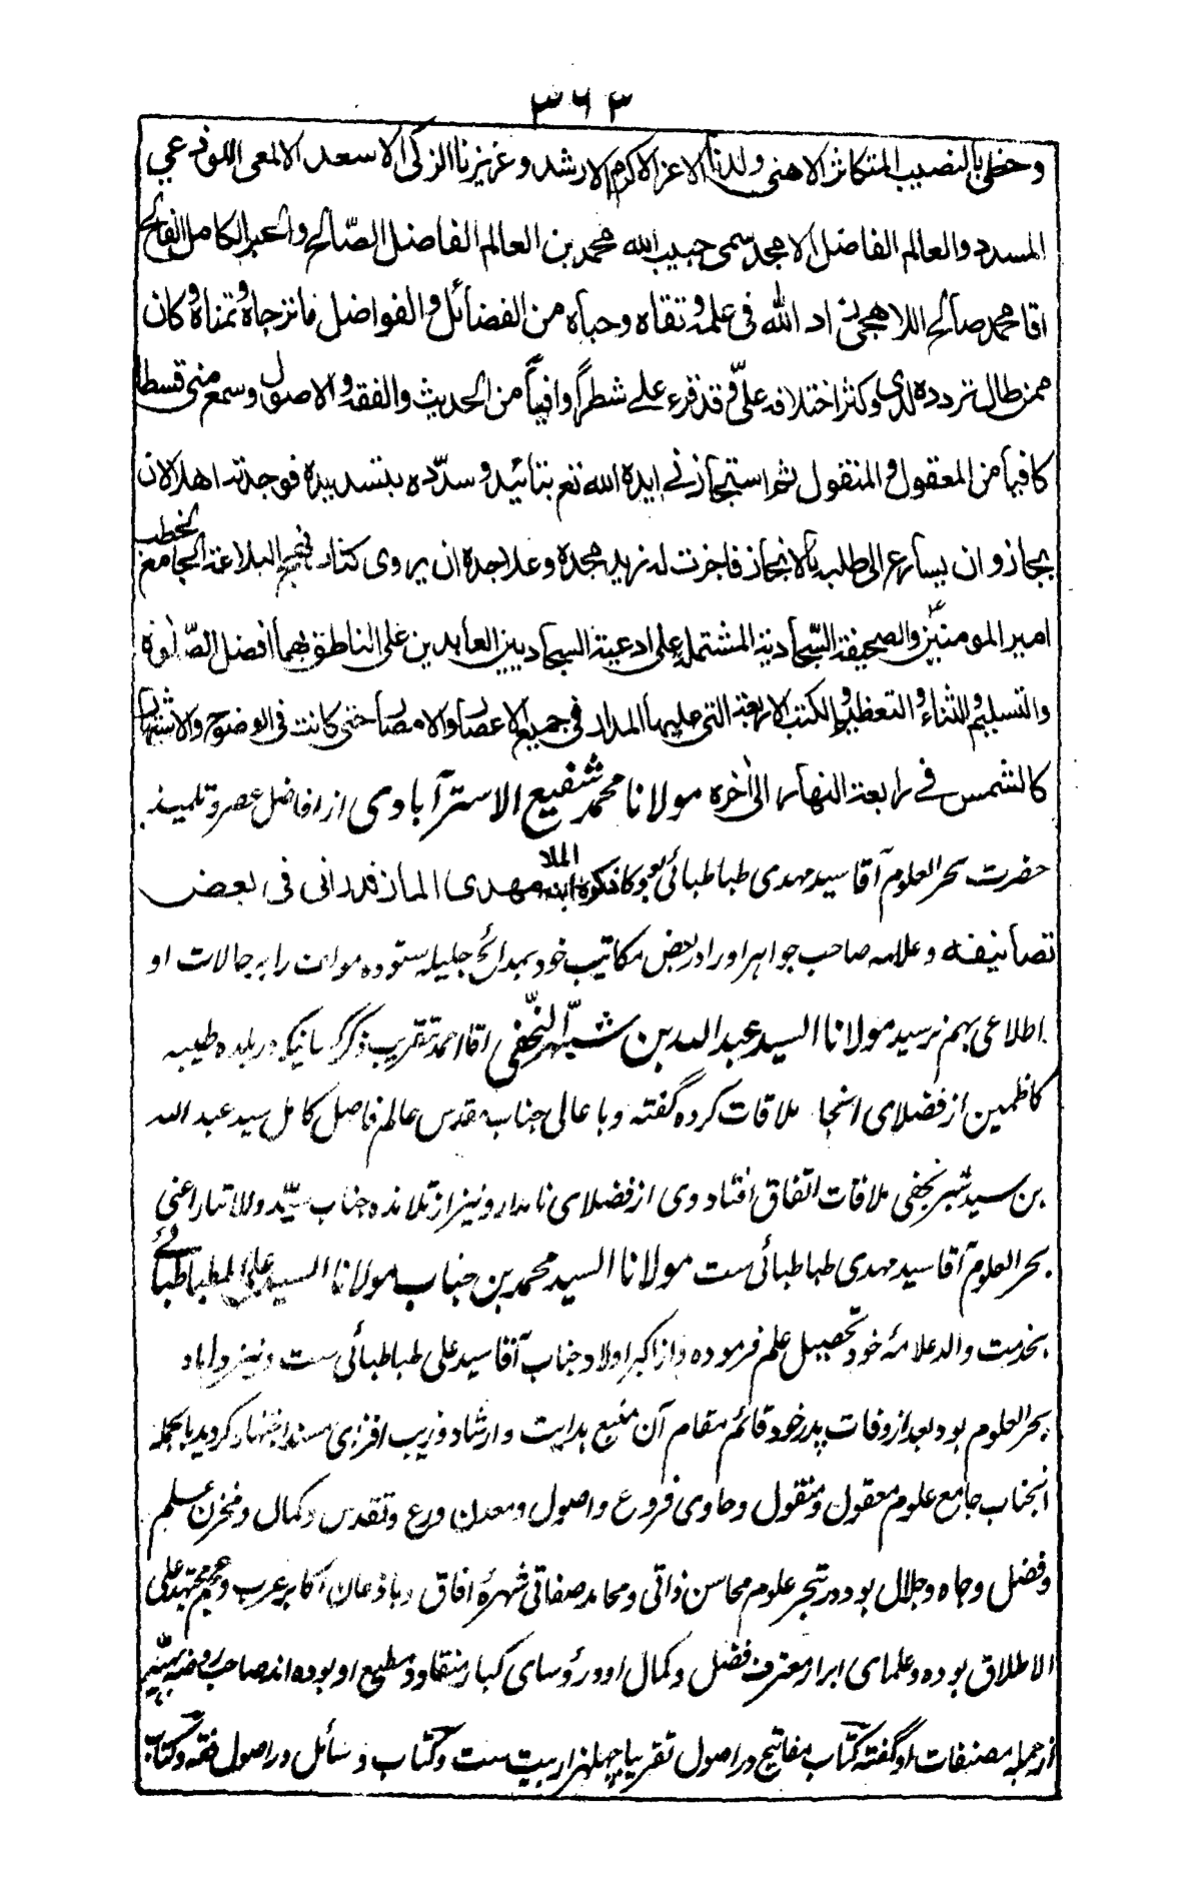 ٣٦٣
وحظی بالنصیب المتکاثر الاهنی ولدنا الاعز الاکرم الارشد وعزیزنا الزکی الاسعد الالمعی اللوذعی
المسدد والعالم الفاضل الامجد سمی حبیب الله محمد بن العالم الفاضل الصّالح والحبر الکامل الفالح
اقا محمد صالح اللاهجی زاد الله فی علمه وتقاه وحباه من الفضائل والفواضل ما نزجاه وتمناه وکان
ممن طال تردده لدی وکثر اختلافه علیّ وقد قرء علے شطراً وافیاً من الحدیث والفقه والاصول وسمع منی قسطا
کافیا من المعقول والمنقول ثم استجازنے ایده الله تع بتائیده وسدّده بتسدیده فوجدته اهلا لان
یجاز وان یسارع الی طلبه بالانجاز فاجزت له زید مجده وعلا جده ان یروی کتاب نهج البلاغة الجامع لخطب
امیر المومنینؑ والصحیفة السّجادیة المشتملة علی ادعیة السجاد زین العابدین علی الناطق بهما افضل الصّلوة
والتسلیم والثناء والتعظیم والکتب الاربعة التی علیها المدار فی جمیع الاعصار والامصار حتی کانت فی الوضوح والاشتهار
کالشمس فے رابعة النهار الی اخره مولانا محمد شفیع الاسترآبادی از افاضل عصر وتلمیذ
حضرت بحر العلوم آقا سید مهدی طباطبائی بود کما ذکره ابنه الملا مهدی المازندرانی فی بعض
تصانیفه وعلامه صاحب جواهر او را در بعض مکاتیب خود بمدائح جلیله ستوده مولف را بر حالات او
اطلاعی بهم نرسید مولانا السید عبد الله بن شبّر النّجفی اقا احمد تقریب ذکر کسانیکه در بلده طیبه
کاظمین از فضلای انجا ملاقات کرده گفته وبا عالی جناب مقدس عالم فاصل کامل سید عبد الله
بن سید شبر نجفی ملاقات اتفاق افتاد وی از فضلای نامدار ونیز از تلامذه جناب سیّد ولا تبار اعنی
بحر العلوم آقا سید مهدی طباطبائی ست مولانا السید محمد بن جناب مولانا السید علی الطباطبائے
بخدمت والد علامهٔ خود تحصیل علم فرموده واز اکبر اولاد جناب آقا سید علی طباطبائی ست ونیز داماد
بحر العلوم بود بعد از وفات پدر خود قائم مقام آن منبع هدایت وارشاد وزیب افزای مسند اجتهاد کردید بالجمله
انجناب جامع علوم معقول ومنقول وحاوی فروع واصول ومعدن ورع وتقدس وکمال ومخزن علم
وفضل وجاه وجلال بود در تبحر علوم محاسن ذاتی ومحامد صفاتی شهرهٔ افاق وباذعان اکابر عرب وعجم مجتهد علی
الاطلاق بوده وعلمای ابرار معترف فضل وکمال او ورؤسای کبار منقاد ومطیع او بوده اند صاحب روضه بهیّه
از جمله مصنفات او گفته کتاب مفاتیح در اصول تقریبا چهل هزار بیت ست وکتاب وسائل در اصول فقه وکتاب